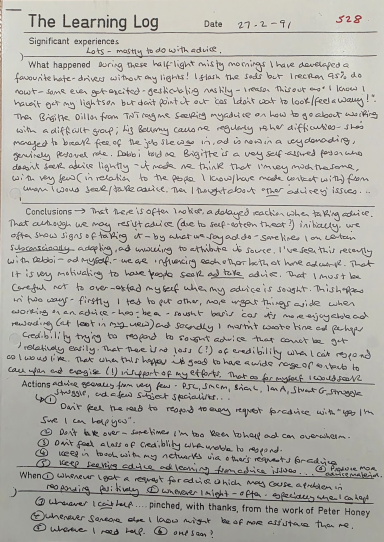 The Learning Log Date 27-2-91 528
Significant experiences
Lots - mostly to do with advice.
What happened During these half-light misty mornings I have developed a
favourite hate - drivers without any lights! I flash the sods but I reckon 95% do
now't - some even get excited - gesticulating nastily - I reason this out as "I know I
haven't got my lights on but don't point it out cos I don't want to look/feel a wally!".
Then Brigitte Dillon from TNI rang me seeking my advice on how to go about working
with a difficult group;
managed to break free of the job she was in, and is now in a very demanding,
genuinely personal role. Debbi told me Brigitte is a very self-assured person who
doesn't seek advice lightly - it made me think that I'm very much the same,
with very few (in relation to the people I know/have made contact with) from
whom I would seek/take advice. Then I thought about other advice issues...
Conclusions → That there is often, I notice, a delayed reaction when taking advice.
That although we may resist advice (due to self-esteem threat?) initially, we
often show signs of taking it - by what we say and do - sometimes, I am certain
subconsciously - adopting and unwilling to attribute its source. I've seen this recently
with Debbi - and myself - we are influencing each other both at home and work. That
it is very motivating to have people seek and take advice. That I must be
careful not to over-extend myself when my advice is sought. This happens
in two ways - firstly I tend to put other, more urgent things aside when
working on an advice - has - been - sought basis 'cos it's more enjoyable and
rewarding (at least in my view) and secondly I mustn't waste time and perhaps
credibility trying to respond to sought advice that cannot be got
relatively easily. That there is no loss (?) of credibility when I can't respond
as I would like. That when this happens it's good to have a wide range of contacts to
call upon and organise (!) in support of my efforts. That as for myself I would seek
Actions advice generally from very few -
struggle, and a few subject specialists...
① Don't feel the need to respond to every request for advice with "yes I'm
sure I can help you".
② Don't take over - sometimes I'm too keen to help and can overwhelm.
③ Don't feel a loss of credibility when unable to respond.
④ Keep in touch with my networks via others' requests for advice
⑤ Keep seeking advice and learning from advice issues...
When ① whenever I get a request for advice which may cause a problem in
responding positively ② whenever I might - often - especially when I can help
③ whenever I can't help.... pinched, with thanks, from the work of Peter Honey
④ whenever someone else I know might be of more assistance than me.
⑤ whenever I need help.